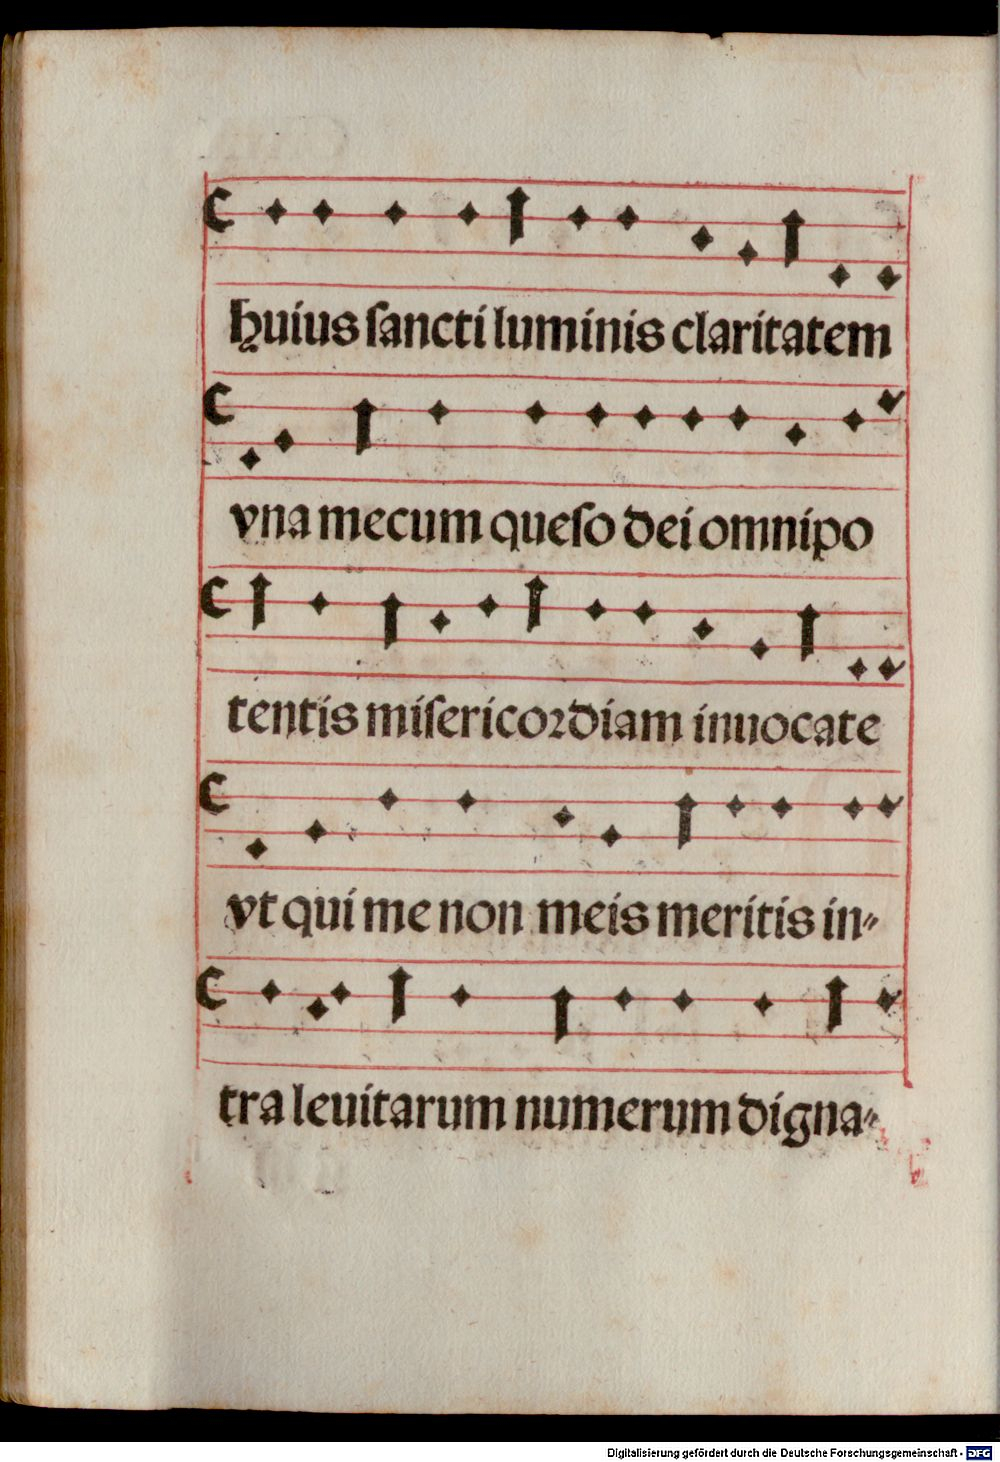 huius sancti luminis claritatem
vna mecum queso dei omnipo
tentis misericordiam inuocate
vt qui me non meis meritis in-
tra leuitarum numerum digna-
Digitalisierung gefördert durch die Deutsche Forschungsgemeinschaft - DFG